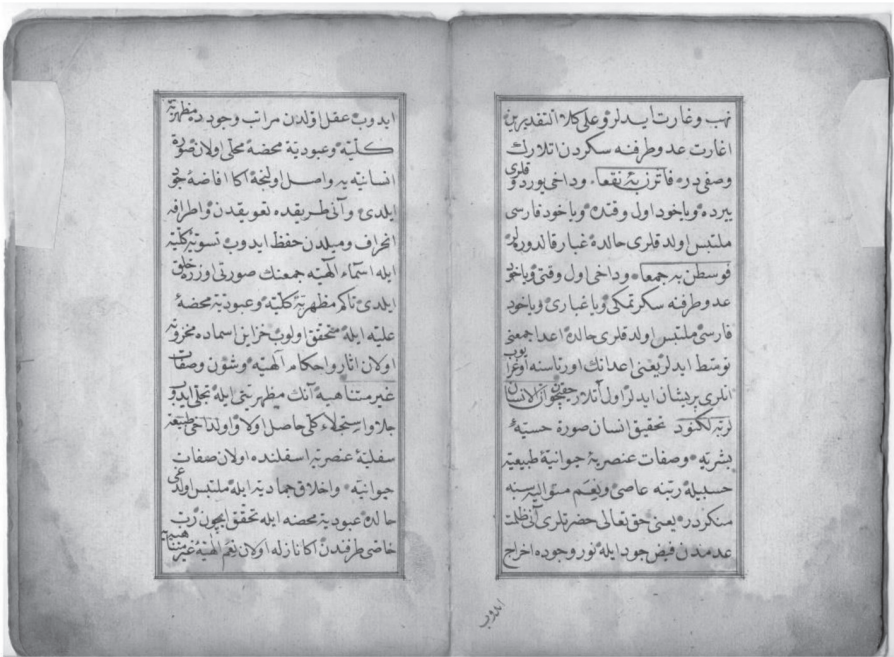 نهب وغارت ايدلر وعلى كلا التقديرين
اغارت عدو طرفنه سكردن اتلارك
وصفيدر فاثرن به نقعا وداخى يوردوقلرى
ييرده وياخود اول وقتده وياخود فارسى
ملتبس اولدقلرى حالده غبار قالدورلر
فوسطن به جمعا وداخى اول وقتى وياخود
عدو طرفنه سكرتمكى وياغبارى وياخود
فارسى ملتبس اولدقلرى حالده اعدا جمعنى
توسط ايدلر يعنى اعدانك اورتاسنه اوغرايوب
انلرى پريشان ايدلر اول اتلار حقيچون ان الانسان
لربه لكنود تحقيق انسان صورة حسيه
بشريه وصفات عنصريۀ حيوانيۀ طبيعيه
حسبيله ربنه عاصى ونعم متواليه سنه
منكردر يعنى حق تعالى حضرتلرى آنى ظلمت
عدمدن فيض جود ايله نور وجوده اخراج
ايدوب
ايدوب عقل اولدن مراتب وجودده مظهريۀ
كليه وعبوديۀ محضه محلى اولان صورة
انسانيه يه واصل اولنجه اكا افاضۀ جود
ايلدى وآنى طريقده تعويقدن واطرافه
انحراف وميلدن حفظ ايدوب تسويۀ كليه
ايله اسماء الهيه جمعنك صورتى اوزره خلق
ايلدى تاكم مظهريۀ كليه وعبوديۀ محضۀ
عليه ايله متحقق اولوب خزاين اسماده مخزونه
اولان اثار واحكام الهيه وشؤن وصفات
غير متناهيه آنك مظهريتى ايله تجلى ايدوب
جلا واستجلاء كلى حاصل اولا واولداخى طبيعۀ
سفليۀ عنصريه اسفلنده اولان صفات
حيوانيه واخلاق جماديه ايله ملتبس اولدغى
حالده عبوديۀ محضه ايله تحقق ايچون رب
خاصى طرفندن اكا نازله اولان نعم الهيۀ غير متناهيه